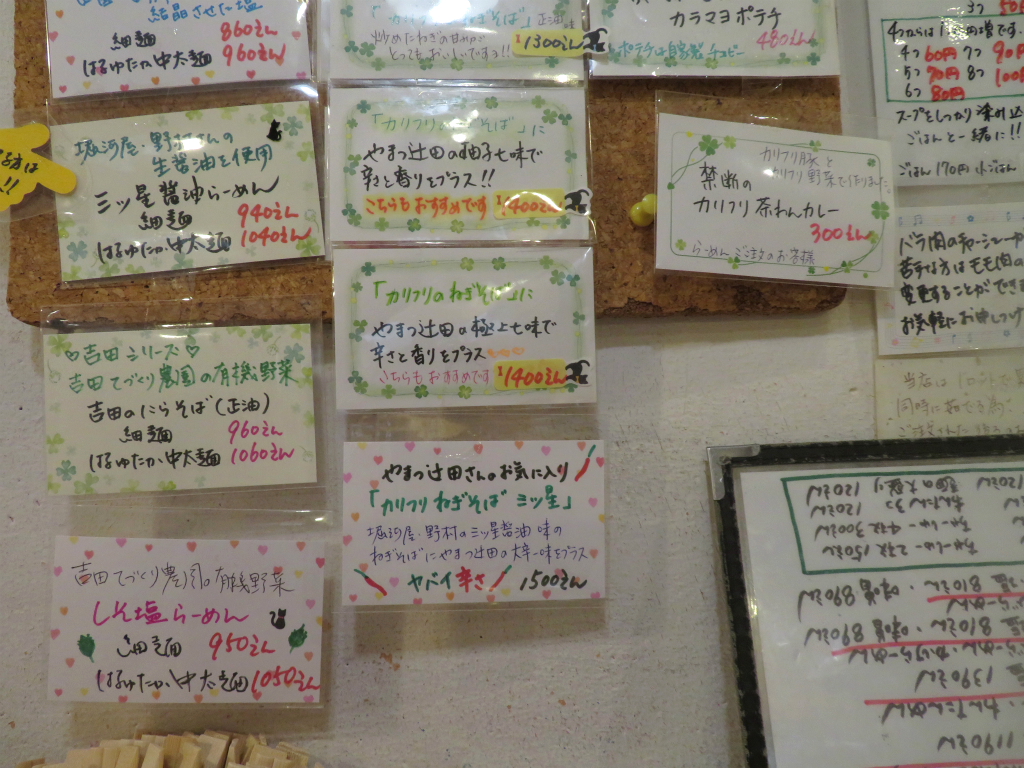 結晶させた塩
細麺 860えん
はるゆたか中太麺 960えん
堀河屋・野村さんの
生醤油を使用
三ッ星醤油らーめん
細麺 940えん
はるゆたか中太麺 1040えん
♡吉田シリーズ♡
吉田てづくり農園の有機野菜
吉田のにらそば(正油)
細麺 960えん
はるゆたか中太麺 1060えん
吉田てづくり農園の有機野菜
しそ塩らーめん
細麺 950えん
はるゆたか中太麺 1050えん
「カリフリねぎそば」正油味
炒めたねぎの甘みで
とってもおいしいですョ!!
¥1300えん
「カリフリのねぎそば」に
やまつ辻田の柚子七味で
辛さと香りをプラス!!
こちらもおすすめです ¥1400えん
「カリフリのねぎそば」に
やまつ辻田の極上七味で
辛さと香りをプラス
こちらもおすすめです ¥1400えん
やまつ辻田さんのお気に入り
「カリフリねぎそば 三ッ星」
堀河屋・野村の三ッ星醤油味の
ねぎそばにやまつ辻田の大辛一味をプラス
ヤバイ辛さ 1500えん
カラマヨポテチ
480えん
ポテチは自家製チョビー
カリフリ豚と
カリフリ野菜で作りました。
禁断の
カリフリ茶わんカレー
300えん
らーめんご注文のお客様
3つ
4つからは
4つ 60円 7つ 90円
5つ 70円 8つ
6つ 80円
スープをしっかり
ごはんと一緒に!!
ごはん170円 小ごはん
バラ肉のチャーシューが
苦手な方はモモ肉の
変更することができま
お気軽にお申しつけ
当店は
同時に
ちゃーしゅー2枚 150えん
ちゃーしゅー4枚 300えん
120えん
120えん
810えん・味噌 890えん
810えん・味噌 890えん
1390えん
1190えん